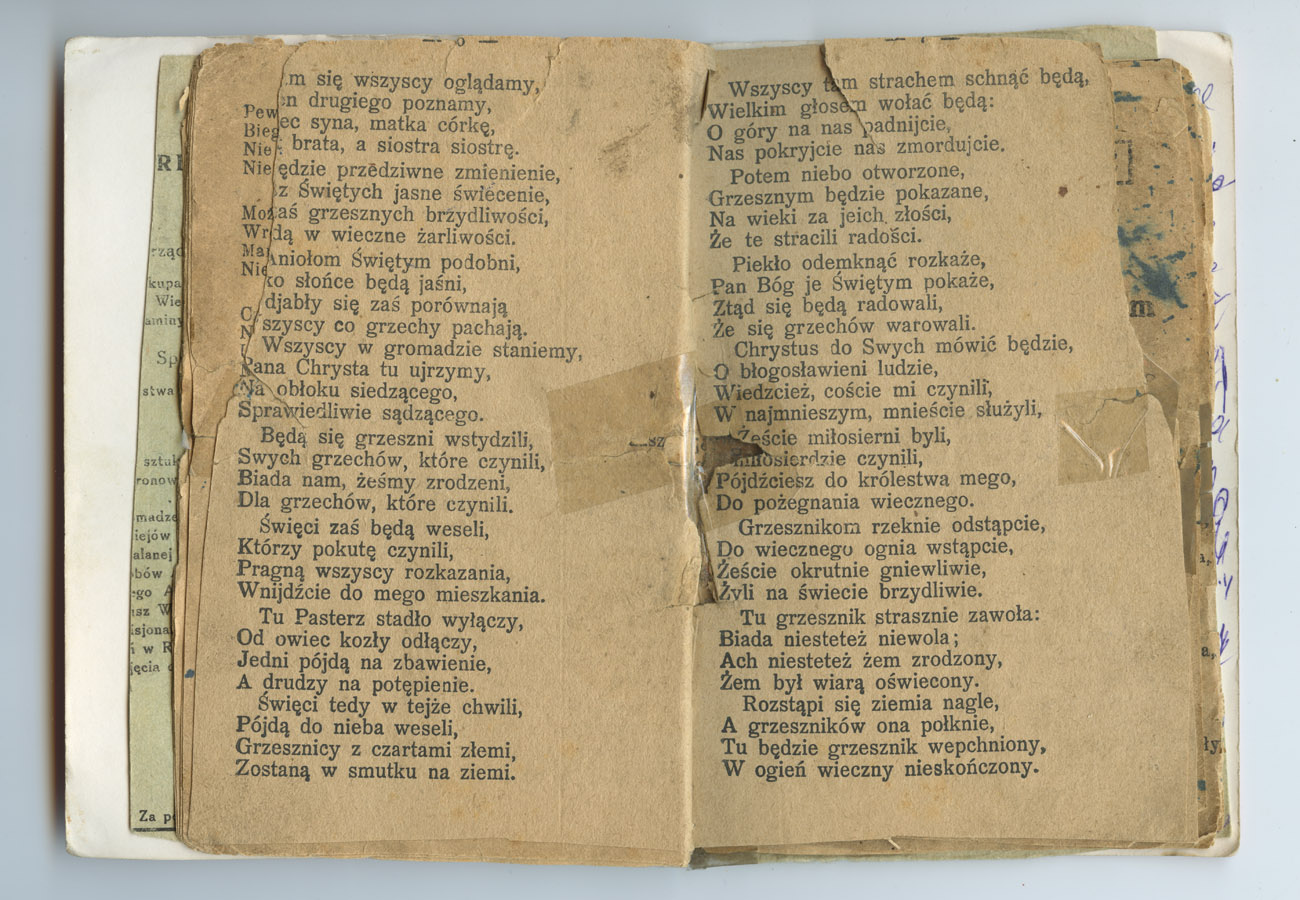 — 6 —
się wszyscy oglądamy,
drugiego poznamy,
syna, matka córkę,
brata, a siostra siostrę.
przēdziwne zmienienie,
z Świętych jasne świecenie,
grzesznych brżydliwości,
w wieczne żarliwości.
Aniołom Świętym podobni,
słońce będą jaśni,
djabły się zaś porównają
szyscy co grzechy pachają.
Wszyscy w gromadzie staniemy,
Pana Chrysta tu ujrzymy,
Na obłoku siedzącego,
Sprawiedliwie sądzącego.
Będą się grzeszni wstydzili,
Swych grzechów, które czynili,
Biada nam, żeśmy zrodzeni,
Dla grzechów, które czynili.
Święci zaś będą weseli,
Którzy pokutę czynili,
Pragną wszyscy rozkazania,
Wnijdźcie do mego mieszkania.
Tu Pasterz stadło wyłączy,
Od owiec kozły odłączy,
Jedni pójdą na zbawienie,
A drudzy na potępienie.
Święci tedy w tejże chwili,
Pójdą do nieba weseli,
Grzesznicy z czartami złemi,
Zostaną w smutku na ziemi.
Wszyscy tam strachem schnąć będą,
Wielkim głosem wołać będą:
O góry na nas padnijcie,
Nas pokryjcie nas zmordujcie.
Potem niebo otworzone,
Grzesznym będzie pokazane,
Na wieki za jeich złości,
Że te stracili radości.
Piekło odemknąć rozkaże,
Pan Bóg je Świętym pokaże,
Ztąd się będą radowali,
Że się grzechów warowali.
Chrystus do Swych mówić będzie,
O błogosławieni ludzie,
Wiedzcież, coście mi czynili,
W najmnieszym, mnieście służyli,
Żeście miłosierni byli,
miłosierdzie czynili,
Pójdźciesz do królestwa mego,
Do pożegnania wiecznego.
Grzesznikom rzeknie odstąpcie,
Do wiecznego ognia wstąpcie,
Żeście okrutnie gniewliwie,
Żyli na świecie brzydliwie.
Tu grzesznik strasznie zawoła:
Biada niestetеż niewola;
Ach niesteteż żem zrodzony,
Żem był wiarą oświecony.
Rozstąpi się ziemia nagle,
A grzeszników ona połknie,
Tu będzie grzesznik wepchniony,
W ogień wieczny nieskończony.